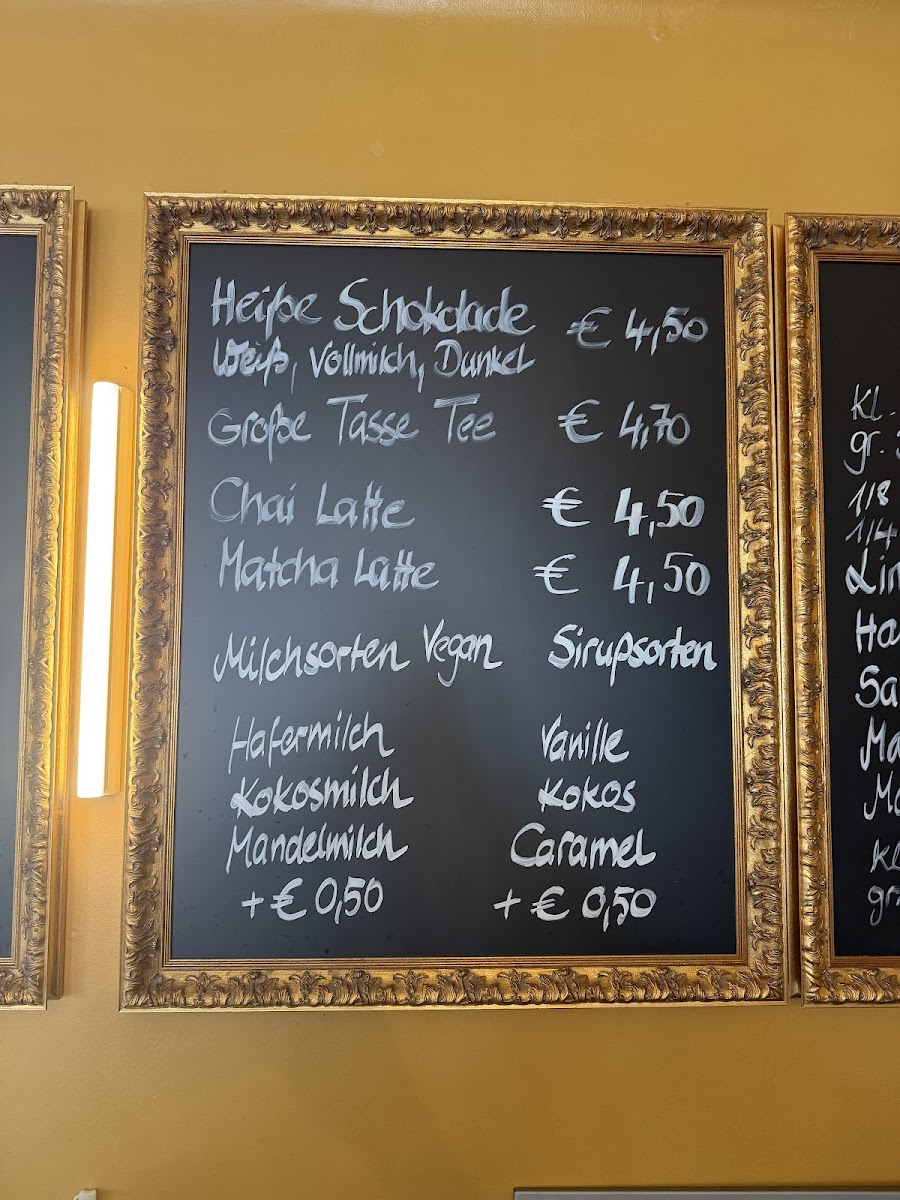 Heiße Schokolade € 4,50
Weiß, Vollmilch, Dunkel
Große Tasse Tee € 4,70
Chai Latte € 4,50
Matcha Latte € 4,50
Milchsorten Vegan Sirupsorten
Hafermilch Vanille
Kokosmilch Kokos
Mandelmilch Caramel
+ € 0,50 + € 0,50
kl.
gr.
1/8
1/4